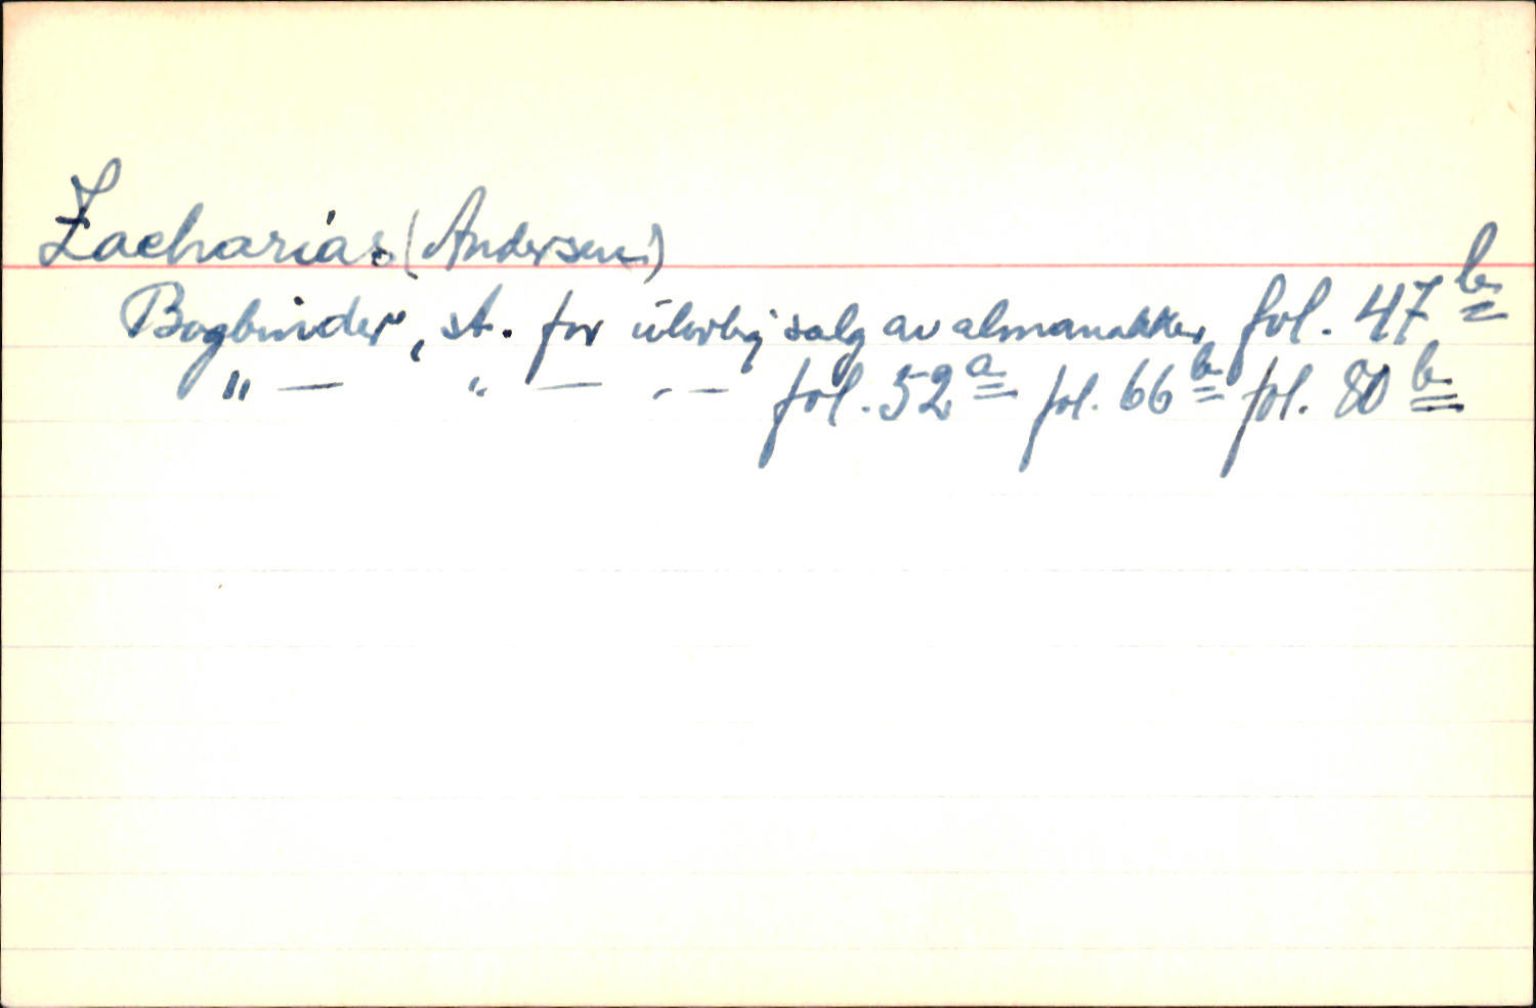 Zacharias (Andersen)
Bogbinder, st. for ulovlig salg av almanakker fol. 47 b
" — " — " — fol. 52 a fol. 66 b fol. 80 b